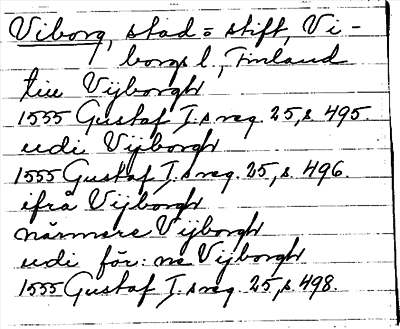 Viborg, stad = stift, Vi-
borgs l., Finland
till Vijborgh
1555 Gustaf I.s reg. 25, s. 495.
udi Vijborgh
1555 Gustaf I.s reg. 25, s. 496.
ifrå Vijborgh
närmere Vijborgh
udi för: ne Vijborgh
1555 Gustaf I.s reg. 25, s. 498.